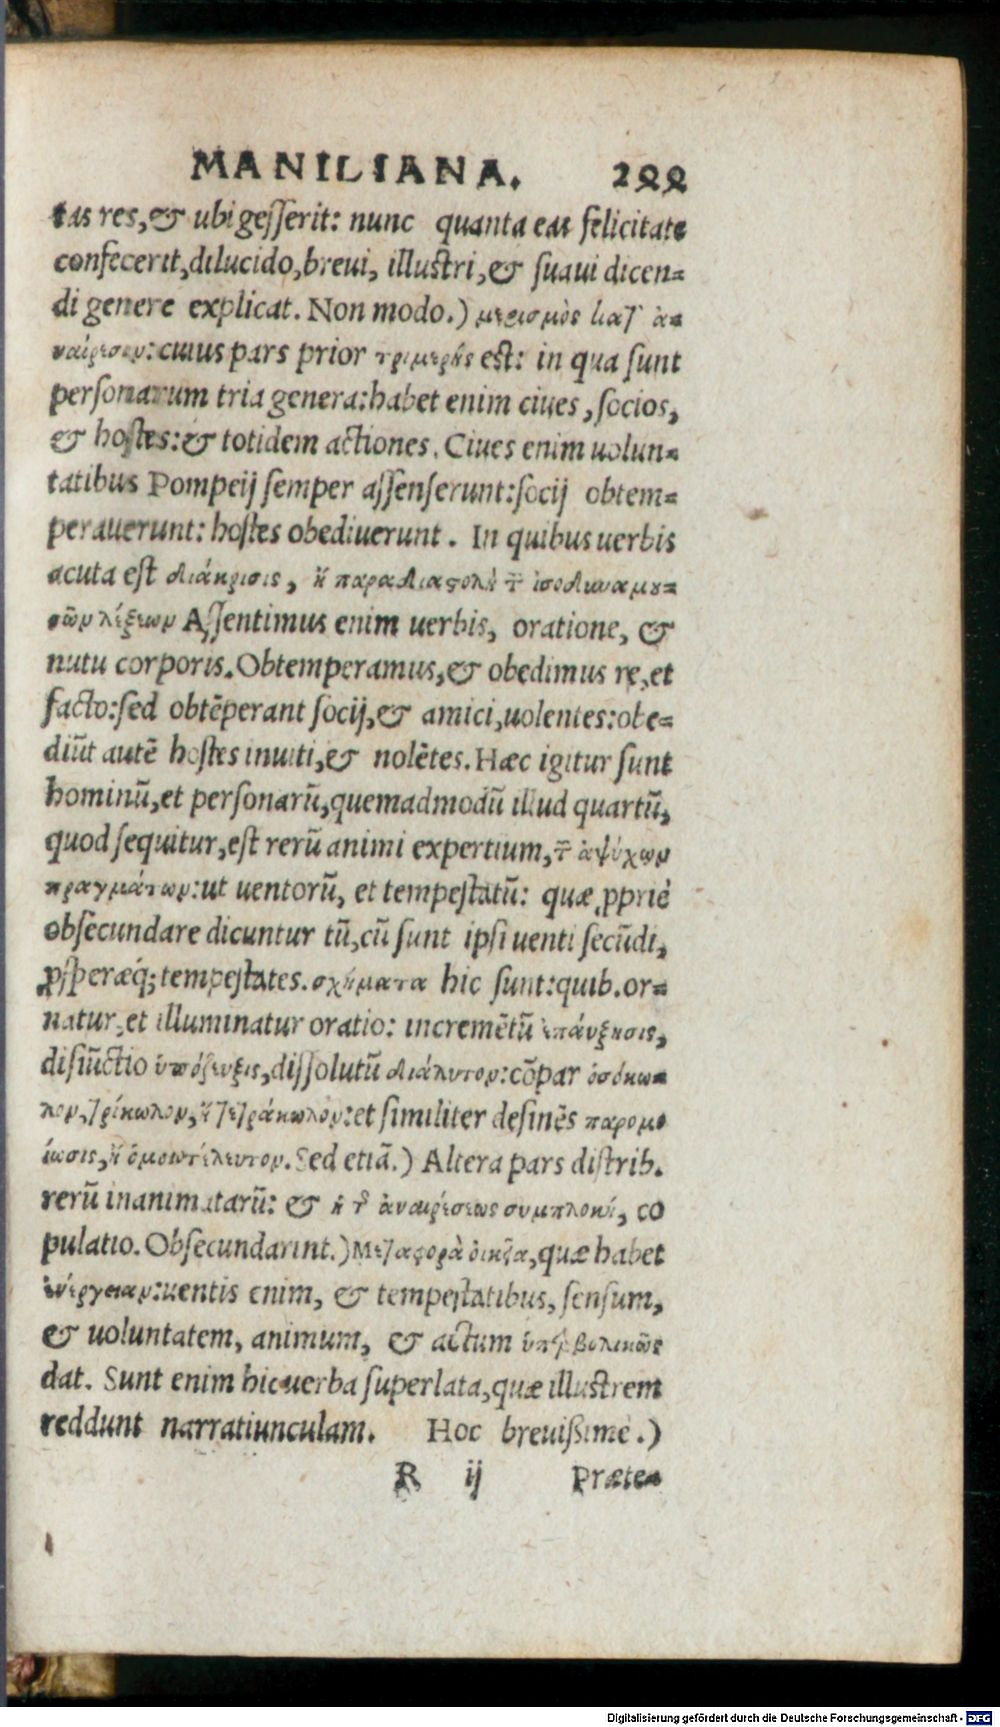 MANILIANA. 2
tas res,& ubi geſſerit: nunc quanta eas felicitate
confecerit,dilucido,breui, illuſtri,& ſuaui dicen=
di genere explicat. Non modo.) μερισμὸς κατ' ἀ=
ναίρεσιν:cuius pars prior τριμερὴς eſt: in qua ſunt
perſonarum tria genera:habet enim ciues,ſocios,
& hoſtes:& totidem actiones. Ciues enim uolun=
tatibus Pompeij ſemper aſſenſerunt:ſocij obtem=
perauerunt: hoſtes obediuerunt. In quibus uerbis
acuta eſt διάκρισις, ἢ παραδιαςολὴ τῶν ἰσοδυναμου=
σῶν λέξεων Aſſentimus enim uerbis, oratione, &
nutu corporis.Obtemperamus,& obedimus re,et
facto:ſed obtēperant ſocij,& amici,uolentes:obe=
diūt autē hoſtes inuiti,& nolētes.Hæc igitur ſunt
hominū,et perſonarū,quemadmodū illud quartū,
quod ſequitur,eſt rerū animi expertium,τῶν ἀψύχων
πραγμάτων:ut uentorū, et tempeſtatū: quæ ꝓpriè
obſecundare dicuntur tū,cū ſunt ipſi uenti ſecūdi,
ꝓſperæq́;tempeſtates.σχήματα hic ſunt:quib.or=
natur,et illuminatur oratio: incremētū ἐπάυξησις,
diſiūctio ὑπόζευξις,diſſolutū διάλυτον:cōpar ἰσόκω=
λον,τρίκωλον,ἢ τετράκωλον:et ſimiliter deſinēs παρομο
ίωσις,ἢ ὁμοιοτέλευτον.Sed etiā.) Altera pars diſtrib.
rerū inanimatarū: & ἡ τῆς ἀναιρέσεως συμπλοκή, co
pulatio.Obſecundarint.)Μεταφορὰ ὀικεῖα,quæ habet
ἐνέργειαν:uentis enim, & tempeſtatibus,ſenſum,
& uoluntatem, animum, & actum ὑπερβολικῶς
dat. Sunt enim hic uerba ſuperlata,quæ illuſtrem
reddunt narratiunculam. Hoc breuißime.)
R ij Præte=
Digitalisierung gefördert durch die Deutsche Forschungsgemeinschaft - DFG